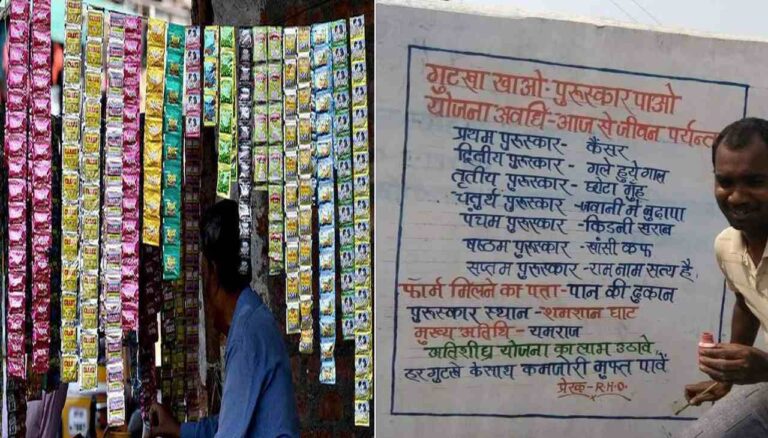 गुटखा खाओ-पुरूस्कार पाओ
योजना अवधि-आज से जीवन पर्यन्त
प्रथम पुरूस्कार- कैंसर
द्वितीय पुरूस्कार - गले हुये गाल
तृतीय पुरूस्कार - छोटा मुँह
चतुर्थ पुरूस्कार -जवानी में बुढ़ापा
पंचम पुरूस्कार - किडनी खराब
षष्ठम पुरूस्कार -खाँसी कफ
सप्तम पुरूस्कार -राम नाम सत्य है,
फार्म मिलने का पता-पान की दुकान
पुरूस्कार स्थान -शमशान घाट
मुख्य अतिथि - यमराज
अतिशीघ्र योजना का लाभ उठावे,
हर गुटखे के साथ कमजोरी मुफ्त पावें
प्रेरक-R.H.O.